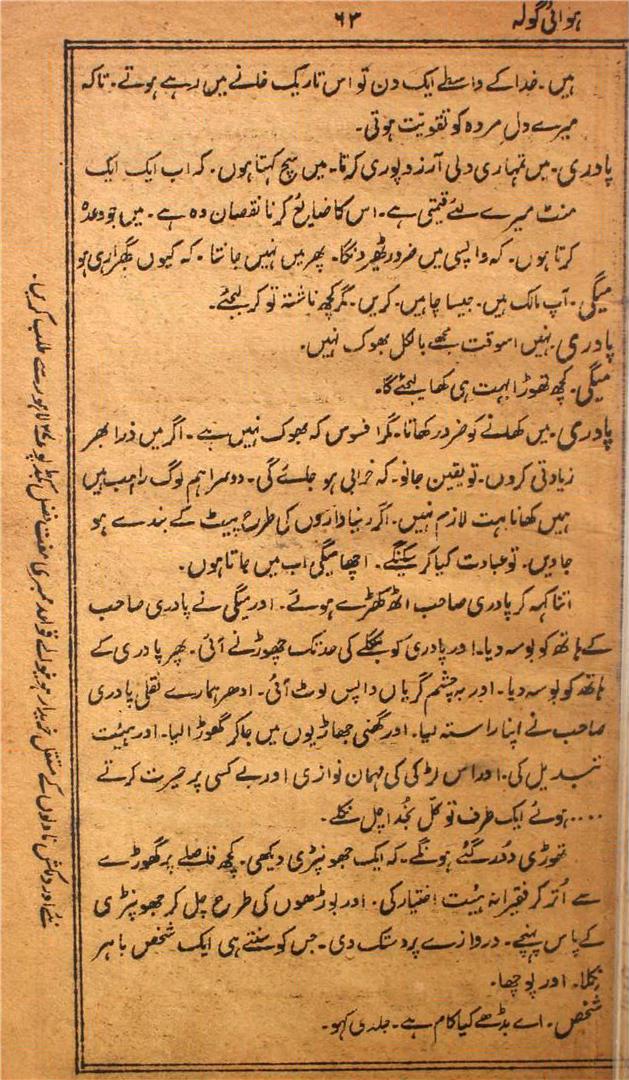 ہوائی گولہ
٦٣
ہیں۔ خدا کے واسطے ایک دن تو اس تاریک خانے میں رہے ہوتے۔ تاکہ
میرے دل مردہ کو تقویت ہوتی۔
پادری۔ میں تمہاری دلی آرزو پوری کرتا۔ میں سچ کہتا ہوں۔ کہ اب ایک ایک
منٹ میرے لئے قیمتی ہے۔ اس کا ضایع کرنا نقصان دہ ہے۔ میں جو وعدہ
کرتا ہوں۔ کہ واپسی میں ضرور ٹھیرونگا۔ پھر میں نہیں جانتا۔ کہ کیوں گھبرا رہی ہو
میگی۔ آپ مالک ہیں۔ جیسا چاہیں۔ کریں۔ مگر کچھ ناشتہ تو کر لیجئے۔
پادری۔ نہیں اسوقت مجھے بالکل بھوک نہیں۔
میگی۔ کچھ تھوڑا بہت ہی کھا لیجئے گا۔
پادری۔ میں کھانے کو ضرور کھاتا۔ مگر افسوس کہ بھوک نہیں ہے۔ اگر میں ذرا بھر
زیادتی کروں۔ تو یقین جانو۔ کہ خرابی ہو جائے گی۔ دوسرا ہم لوگ راہب ہیں
ہمیں کھانا بہت لازم نہیں۔ اگر دنیا داروں کی طرح پیٹ کے بندے ہو
جاویں۔ تو عبادت کیا کر سکینگے۔ اچھا میگی اب میں جاتا ہوں۔
اتنا کہہ کر پادری صاحب اٹھ کھڑے ہوئے۔ اور میگی نے پادری صاحب
کے ہاتھ کو بوسہ دیا۔ اور پادری کو جنگلے کی حد تک چھوڑنے آئی۔ پھر پادری کے
ہاتھ کو بوسہ دیا۔ اور بہ چشم گریاں واپس لوٹ آئی۔ ادھر ہمارے نقلی پادری
صاحب نے اپنا راستہ لیا۔ اور گھنی جھاڑیوں میں جا کر گھوڑا لیا۔ اور ہیئت
تبدیل کی۔ اور اس لڑکی کی مہمان نوازی اور بے کسی پر حیرت کرتے
.... ہوئے ایک طرف تو کل بخدا چل نکلے۔
تھوڑی دور گئے ہونگے۔ کہ ایک جھونپڑی دیکھی۔ کچھ فاصلے پر گھوڑے
سے اُتر کر فقیرانہ ہیئت اختیار کی۔ اور بوڑھوں کی طرح چل کر جھونپڑی
کے پاس پہنچے۔ دروازے پر دستک دی۔ جس کو سنتے ہی ایک شخص باہر
نکلا۔ اور پوچھا۔
شخص۔ اے بڈھے کیا کام ہے۔ جلدی کہو۔
نئے اور دلکش ناولوں کے مستقل خریدار ہونیوالے قواعد ممبری مفت فضل بکڈپو لاہور سے طلب کریں۔